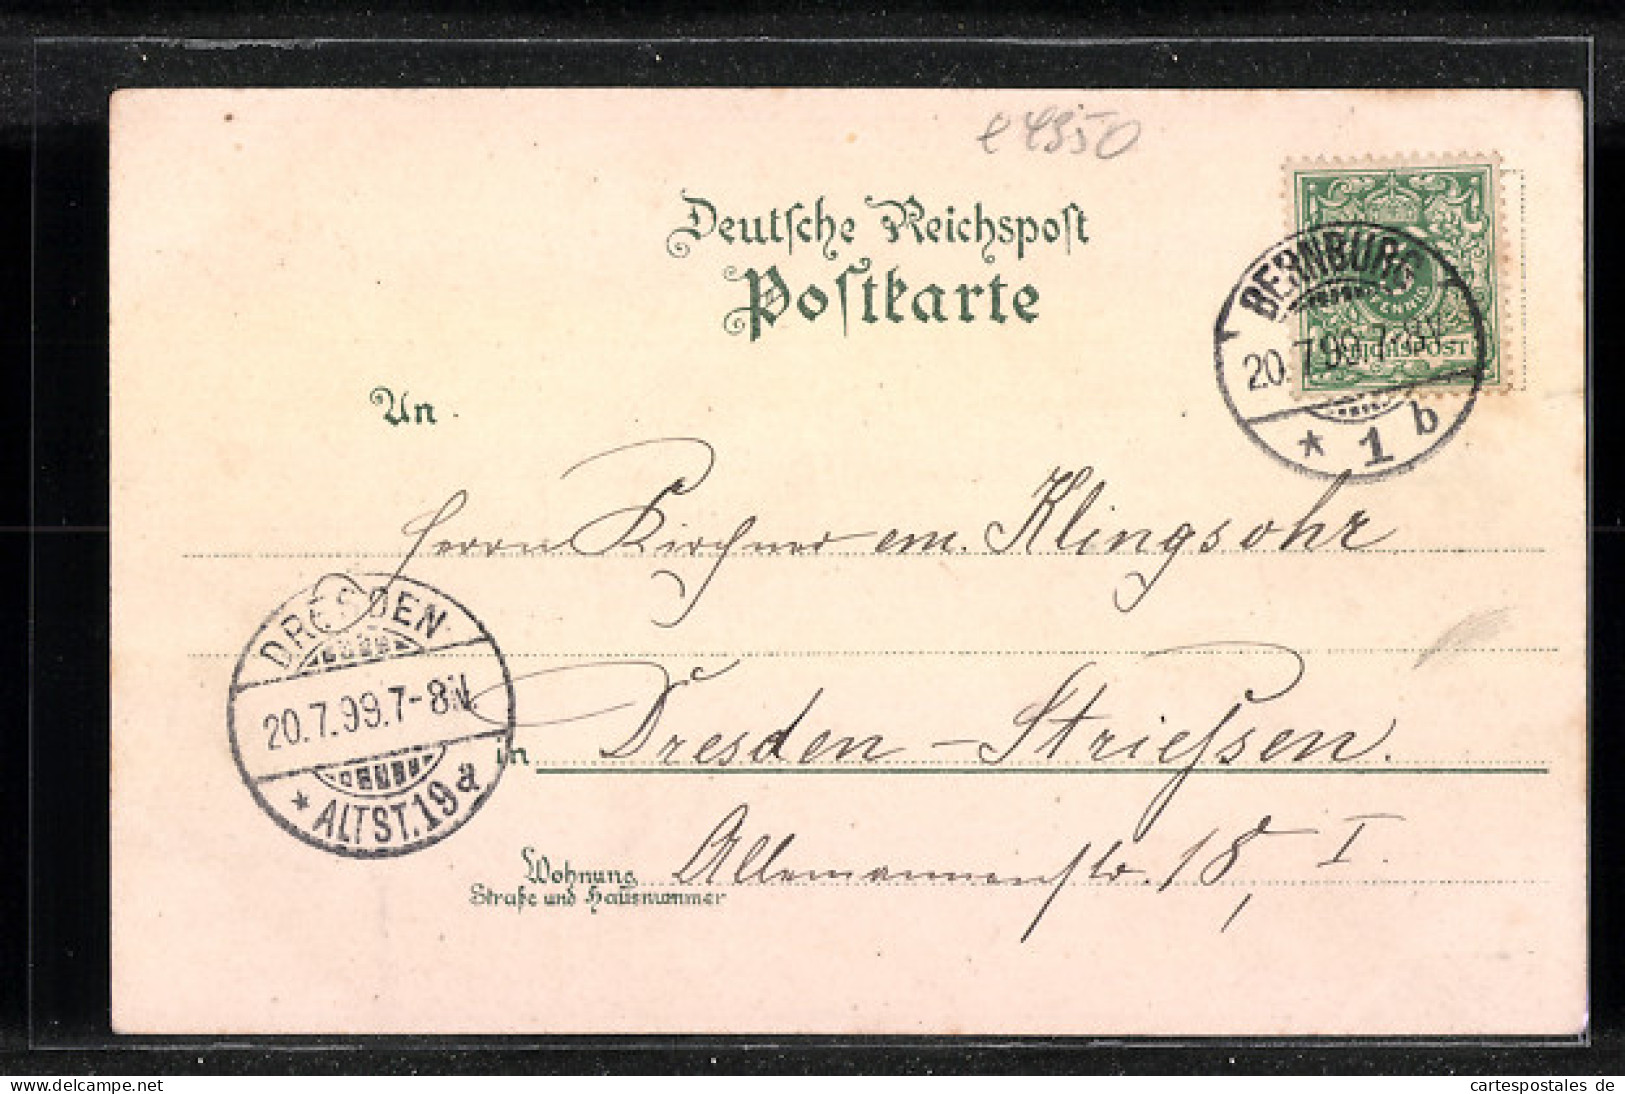 e 4350
Deutsche Reichspost
Postkarte
BERNBURG
20.7.99.7-8V.
* 1 b
REICHSPOST
An
Herrn Kirchner em. Klingsohr
DRESDEN
20.7.99.7-8N.
* ALTST.19a
in Dresden-Striessen.
Wohnung Allemannenstr. 18, I.
Straße und Hausnummer
delcampe.net
cartespostales de